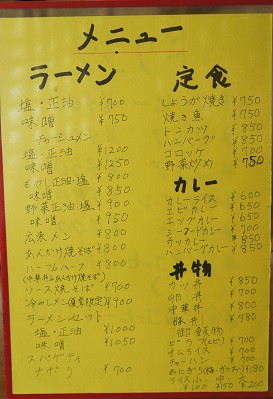 メニュー
ラーメン
塩・正油 ¥700
味噌 ¥750
チャーシューメン
塩・正油 ¥1200
味噌 ¥1250
もやし正油・塩 ¥800
味噌 ¥850
野菜正油・塩 ¥900
味噌 ¥950
広東メン ¥800
あんかけ焼そば ¥800
ハーフ&ハーフ ¥800
(中華丼&あんかけ焼そば)
ソース焼そば ¥700
冷やしメン(夏季限定) ¥900
ラーメンセット
塩・正油 ¥1000
味噌 ¥1050
スパゲティ
ナポリ ¥700
定食
しょうが焼き ¥750
焼き魚 ¥750
トンカツ ¥850
ハンバーグ ¥850
コロッケ ¥700
野菜炒め ¥750
カレー
カレーライス ¥600
エビカレー ¥650
エッグカレー ¥650
シーフードカレー ¥700
カツカレー ¥850
ハンバーグカレー ¥850
丼物
カツ丼 ¥850
卵丼 ¥700
中華丼 ¥800
豚丼 ¥780
御飯物
ピラフ(エビ) ¥700
オムライス ¥700
チャーハン ¥700
おにぎり(梅・かつお) ¥180
ライス小 中 大
¥100 ¥150 ¥200